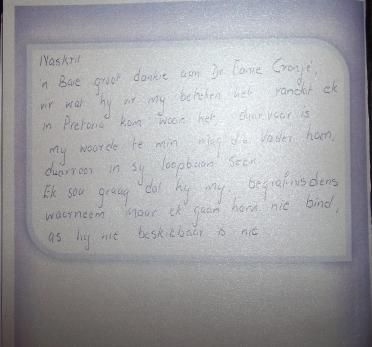 Naskrif
'n Baie groot dankie aan Dr Fanie Cronjé,
vir wat hy vir my beteken het vandat ek
in Pretoria kom woon het, daarvoor is
my woorde te min mag die Vader hom,
daarvoor in sy loopbaan Seën
Ek sou graag dat hy my begrafnisdiens
waarneem maar ek gaan hom nie bind,
as hy nie beskikbaar is nie